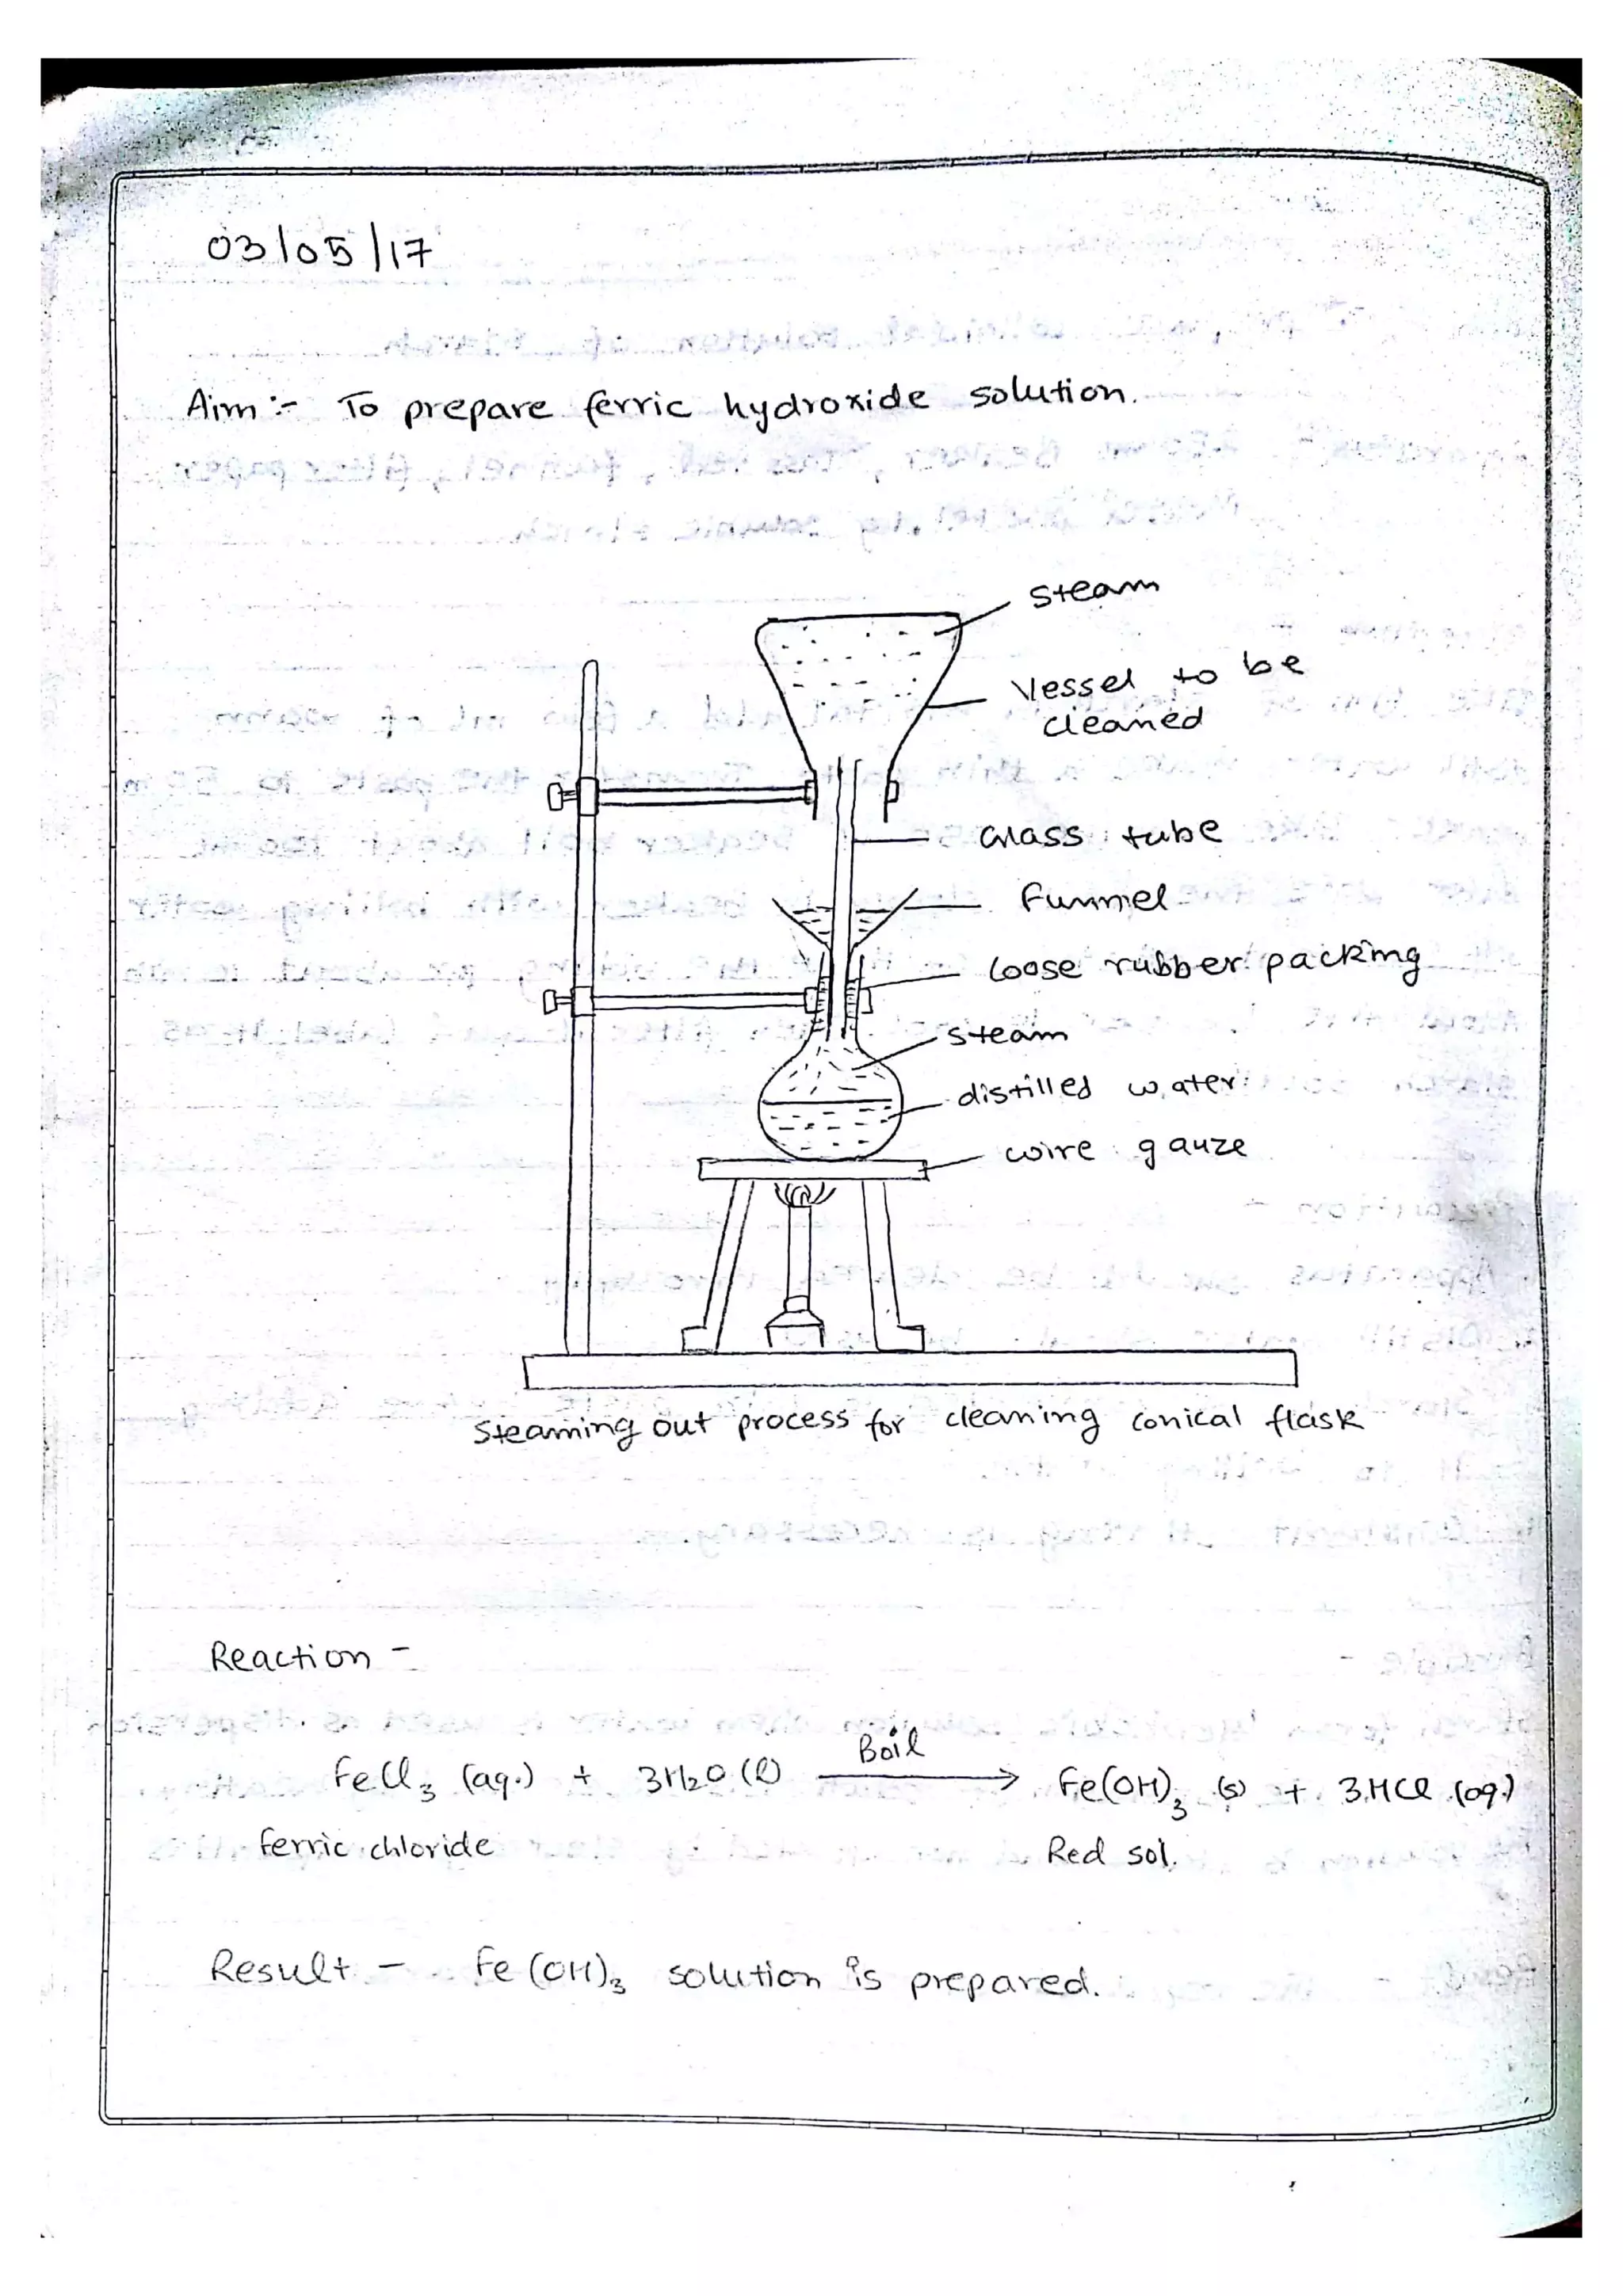 03/05/17
Aim :- To prepare ferric hydroxide solution.
steam
Vessel to be
cleaned
Glass tube
Funnel
loose rubber packing
steam
distilled water
wire gauze
Steaming out process for cleaning conical flask
Reaction -
FeCl₃ (aq.) + 3H₂O (l) Boil → Fe(OH)₃ (s) + 3HCl (aq.)
Ferric chloride Red sol.
Result - Fe(OH)₃ solution is prepared.